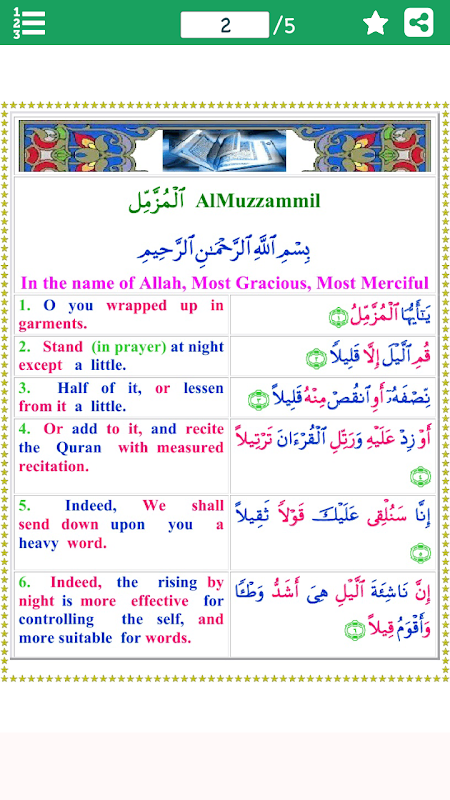 1
2
3
2 /5
ٱلْمُزَّمِّل AlMuzzammil
بِسْمِ ٱللَّهِ ٱلرَّحْمَٰنِ ٱلرَّحِيمِ
In the name of Allah, Most Gracious, Most Merciful
1. O you wrapped up in
garments.
يَـٰٓأَيُّهَا ٱلْمُزَّمِّلُ ١
2. Stand (in prayer) at night
except a little.
قُمِ ٱلَّيْلَ إِلَّا قَلِيلاً ٢
3. Half of it, or lessen
from it a little.
نِّصْفَهُۥٓ أَوِ ٱنقُصْ مِنْهُ قَلِيلاً ٣
4. Or add to it, and recite
the Quran with measured
recitation.
أَوْ زِدْ عَلَيْهِ وَرَتِّلِ ٱلْقُرْءَانَ تَرْتِيلاً
٤
5. Indeed, We shall
send down upon you a
heavy word.
إِنَّا سَنُلْقِى عَلَيْكَ قَوْلاً ثَقِيلاً
٥
6. Indeed, the rising by
night is more effective for
controlling the self, and
more suitable for words.
إِنَّ نَاشِئَةَ ٱلَّيْلِ هِىَ أَشَدُّ وَطْـًٔا
وَأَقْوَمُ قِيلاً ٦